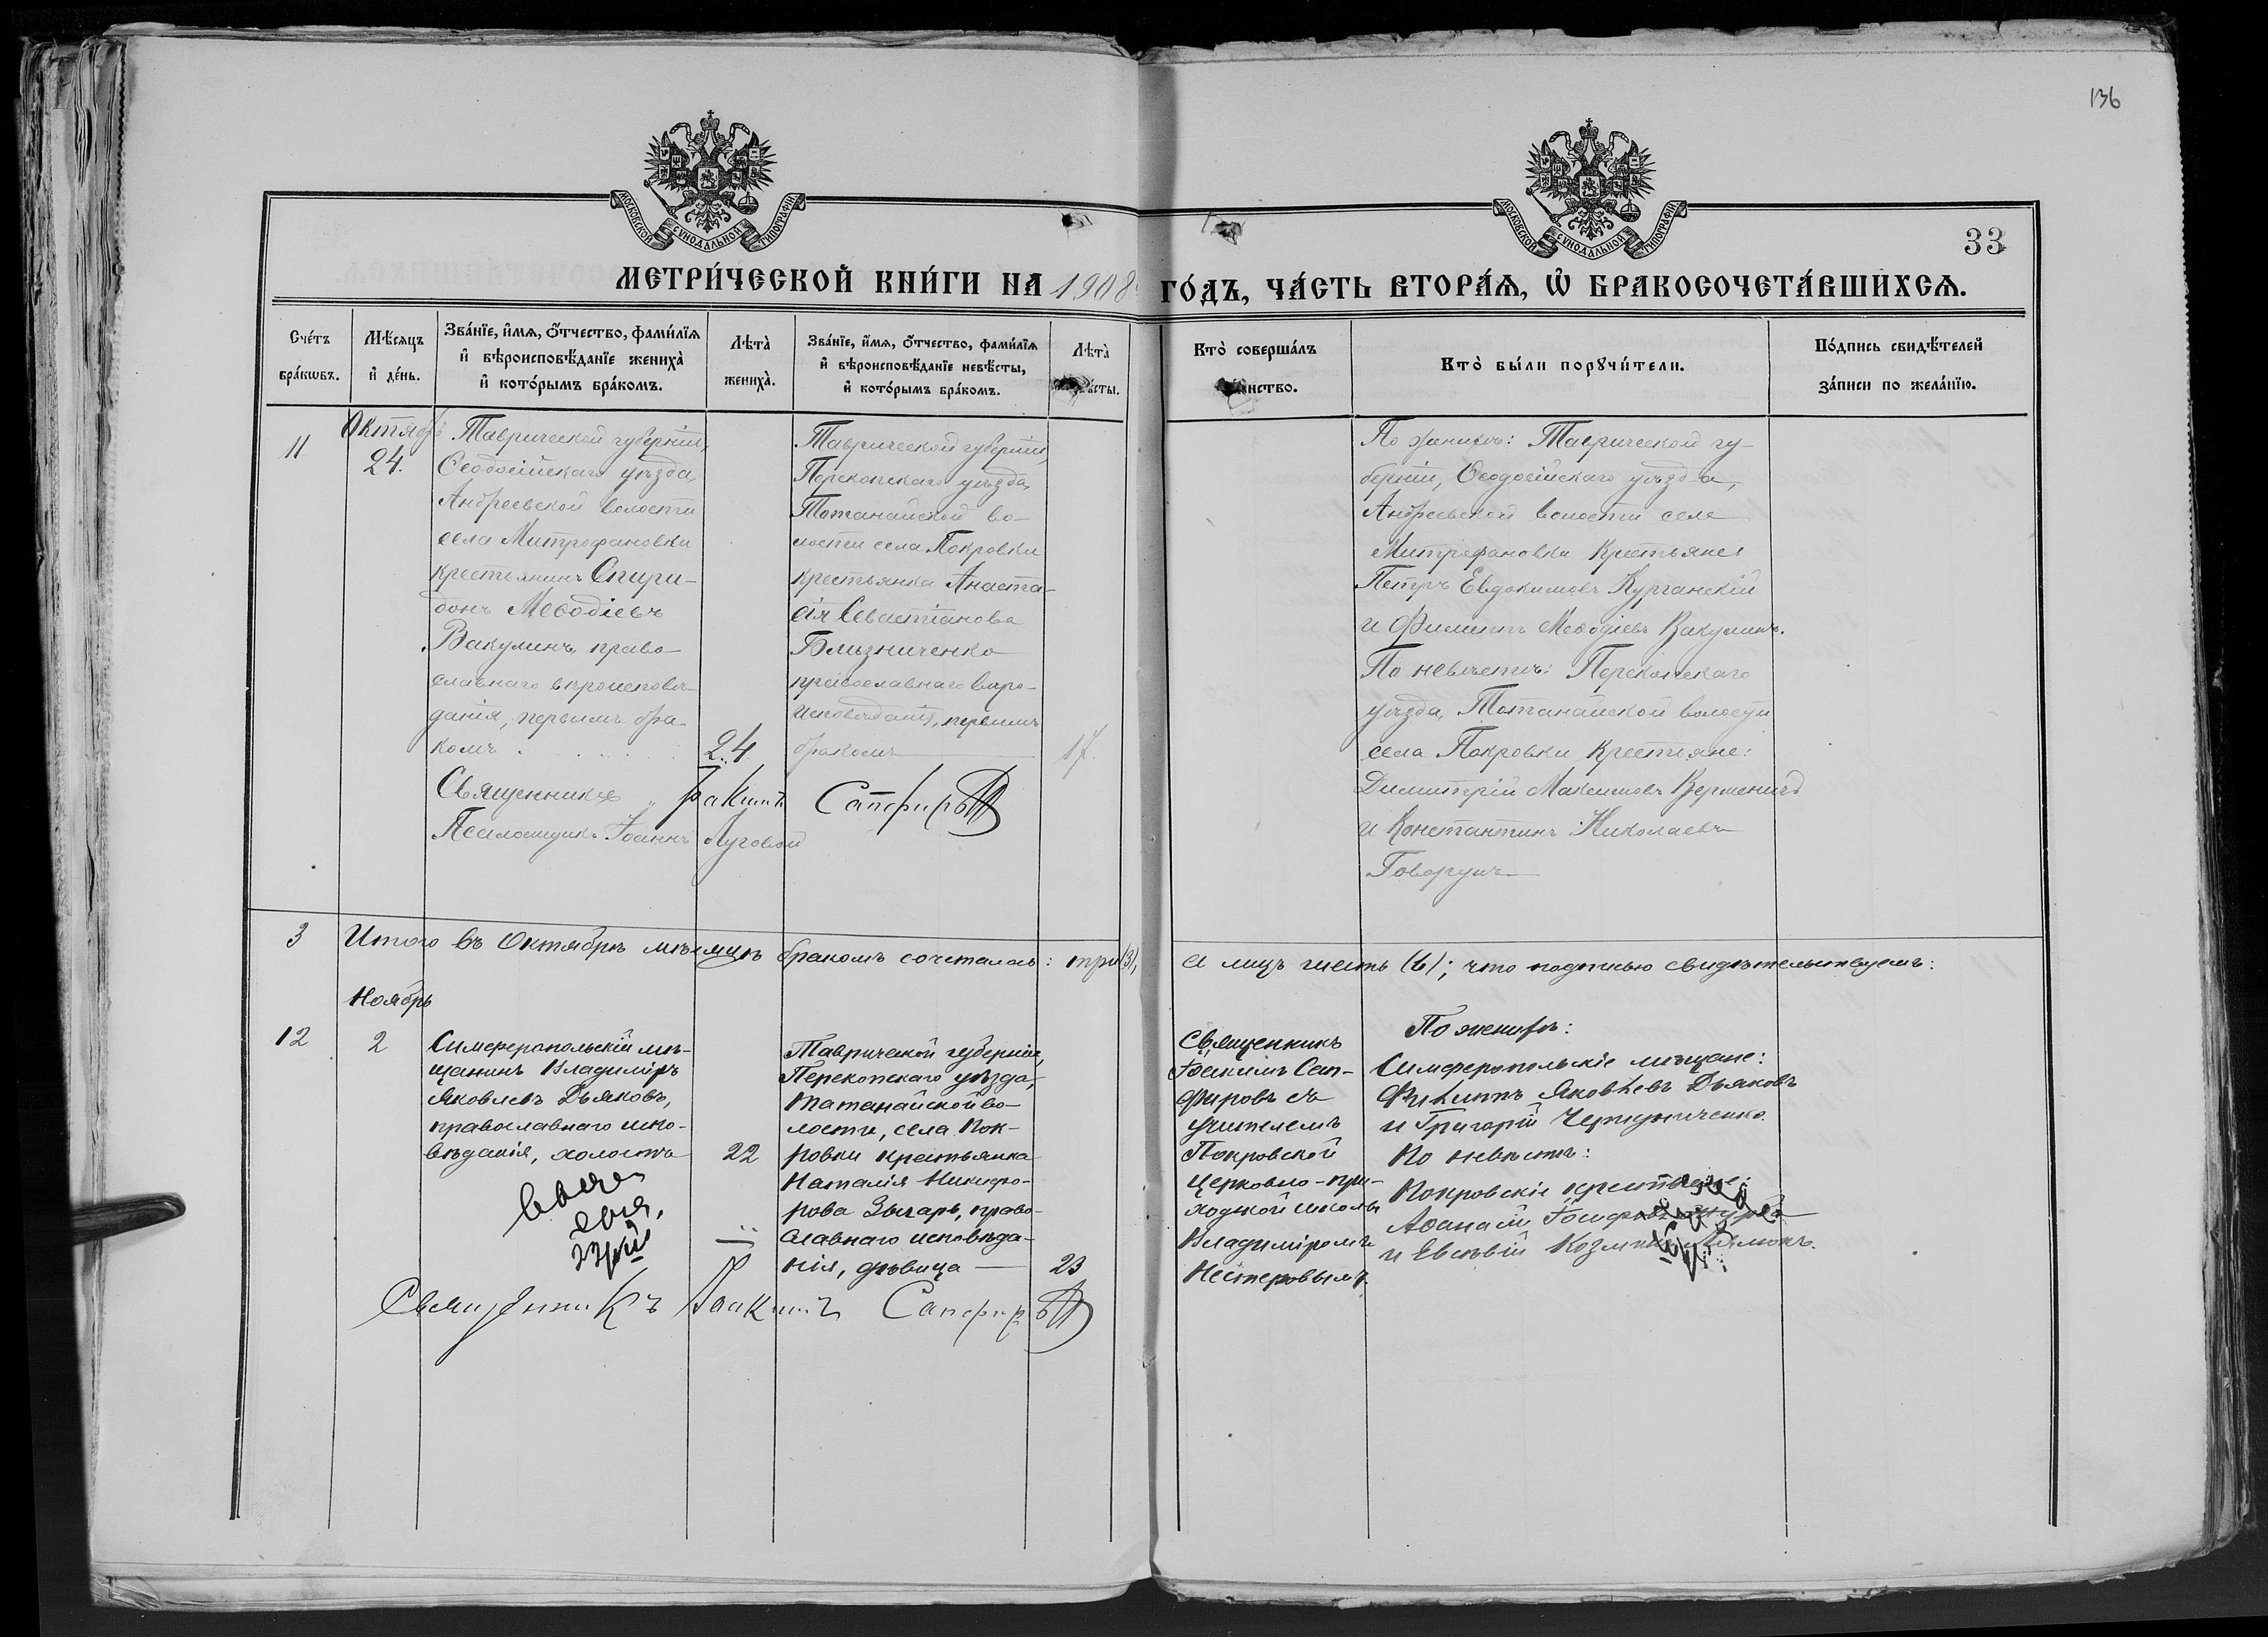 136
МОСКОВСКОЙ СУНОДАЛЬНОЙ ТИПОГРАФІИ
МОСКОВСКОЙ СУНОДАЛЬНОЙ ТИПОГРАФІИ
33
МЕТРИ́ЧЕСКОЙ КНИ́ГИ НА 1908 ГО́ДЪ, ЧА́СТЬ ВТОРА́Ѧ, Ѽ БРАКОСОЧЕТА́ВШИХСѦ.
Сче́тъ бра́кωвъ.
Мѣ́сяцъ и҆ де́нь.
Зва́нїе, и҆́мѧ, ѻ҆́тчество, фами́лїѧ
и҆ вѣроисповѣ́данїе жениха̀
и҆ кото́рымъ бра́комъ.
Лѣта̀ жениха̀.
Зва́нїе, и҆́мѧ, ѻ҆́тчество, фами́лїѧ
и҆ вѣроисповѣ́данїе невѣ́сты,
и҆ кото́рымъ бра́комъ.
Лѣта̀
Кто̀ соверша́лъ
Кто̀ бы́ли порꙋчи́тели.
По́дпись свидѣ́телей
за́писи по жела́нїю.
11
Октябрь
24.
Таврической губерніи,
Ѳеодосійскаго уѣзда,
Андреевской волости
села Митрофановки
крестьянинъ Спири-
донъ Меѳодіевъ
Вакулинъ, право-
славнаго вѣроисповѣ-
данія, первымъ бра-
комъ
24
Таврической губерніи,
Перекопскаго уѣзда,
Тотанайской во-
лости села Покровки
крестьянка Анаста-
сія Севастіанова
Близниченко
православнаго вѣро-
исповѣданія, первымъ
бракомъ
17.
По женихѣ: Таврической гу-
берніи, Ѳеодосійскаго уѣзда,
Андреевской волости села
Митрофановки крестьяне
Петръ Евдокимовъ Курганскій
и Филиппъ Меѳодіевъ Вакулинъ.
По невѣстѣ: Перекопскаго
уѣзда, Тотанайской волости
села Покровки крестьяне:
Димитрій Максимовъ
и Константинъ Николаевъ
Говорунъ
Священникъ Іоакимъ Сапфировъ
Псаломщикъ Іоаннъ Луговой
3 Итого въ Октябрѣ мѣсяцѣ бракомъ сочеталось: три (3), а лицъ шесть (6); что подписью свидѣтельствуемъ:
Ноябрь
12
2
Симферопольскій мѣ-
щанинъ Владиміръ
Яковлевъ Дьяковъ,
православнаго испо-
вѣданія, холостъ
22
Таврической губерніи,
Перекопскаго уѣзда,
Татанайской во-
лости, села Пок-
ровки крестьянка
Наталія Никифо-
рова Зыгарь, право-
славнаго исповѣда-
нія, дѣвица
23
Священникъ
Іоакимъ Сап-
фировъ съ
учителемъ
Покровской
церковно-при-
ходской школы
Владиміромъ
Нестеровымъ
По женихѣ:
Симферопольскіе мѣщане:
Филиппъ Яковлевъ Дьяковъ
и Григорій
По невѣстѣ:
Покровскіе крестьяне:
Аѳанасій
и Евсевій Козминъ
Священникъ Іоакимъ Сапфировъ